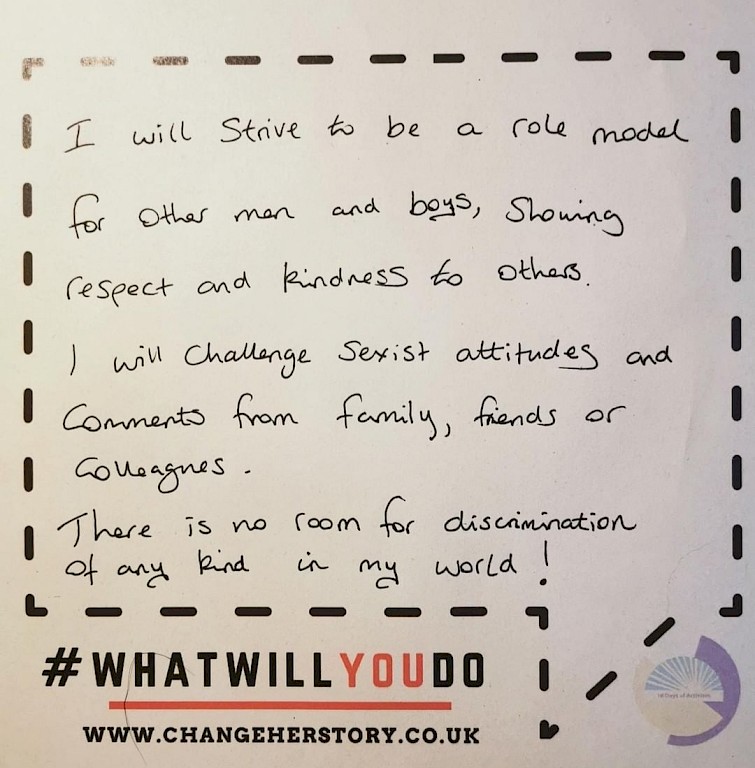 I will strive to be a role model
for other men and boys, showing
respect and kindness to others.
I will challenge sexist attitudes and
comments from family, friends or
colleagues.
There is no room for discrimination
of any kind in my world!
#WHATWILLYOUDO
WWW.CHANGEHERSTORY.CO.UK
16 Days of Activism